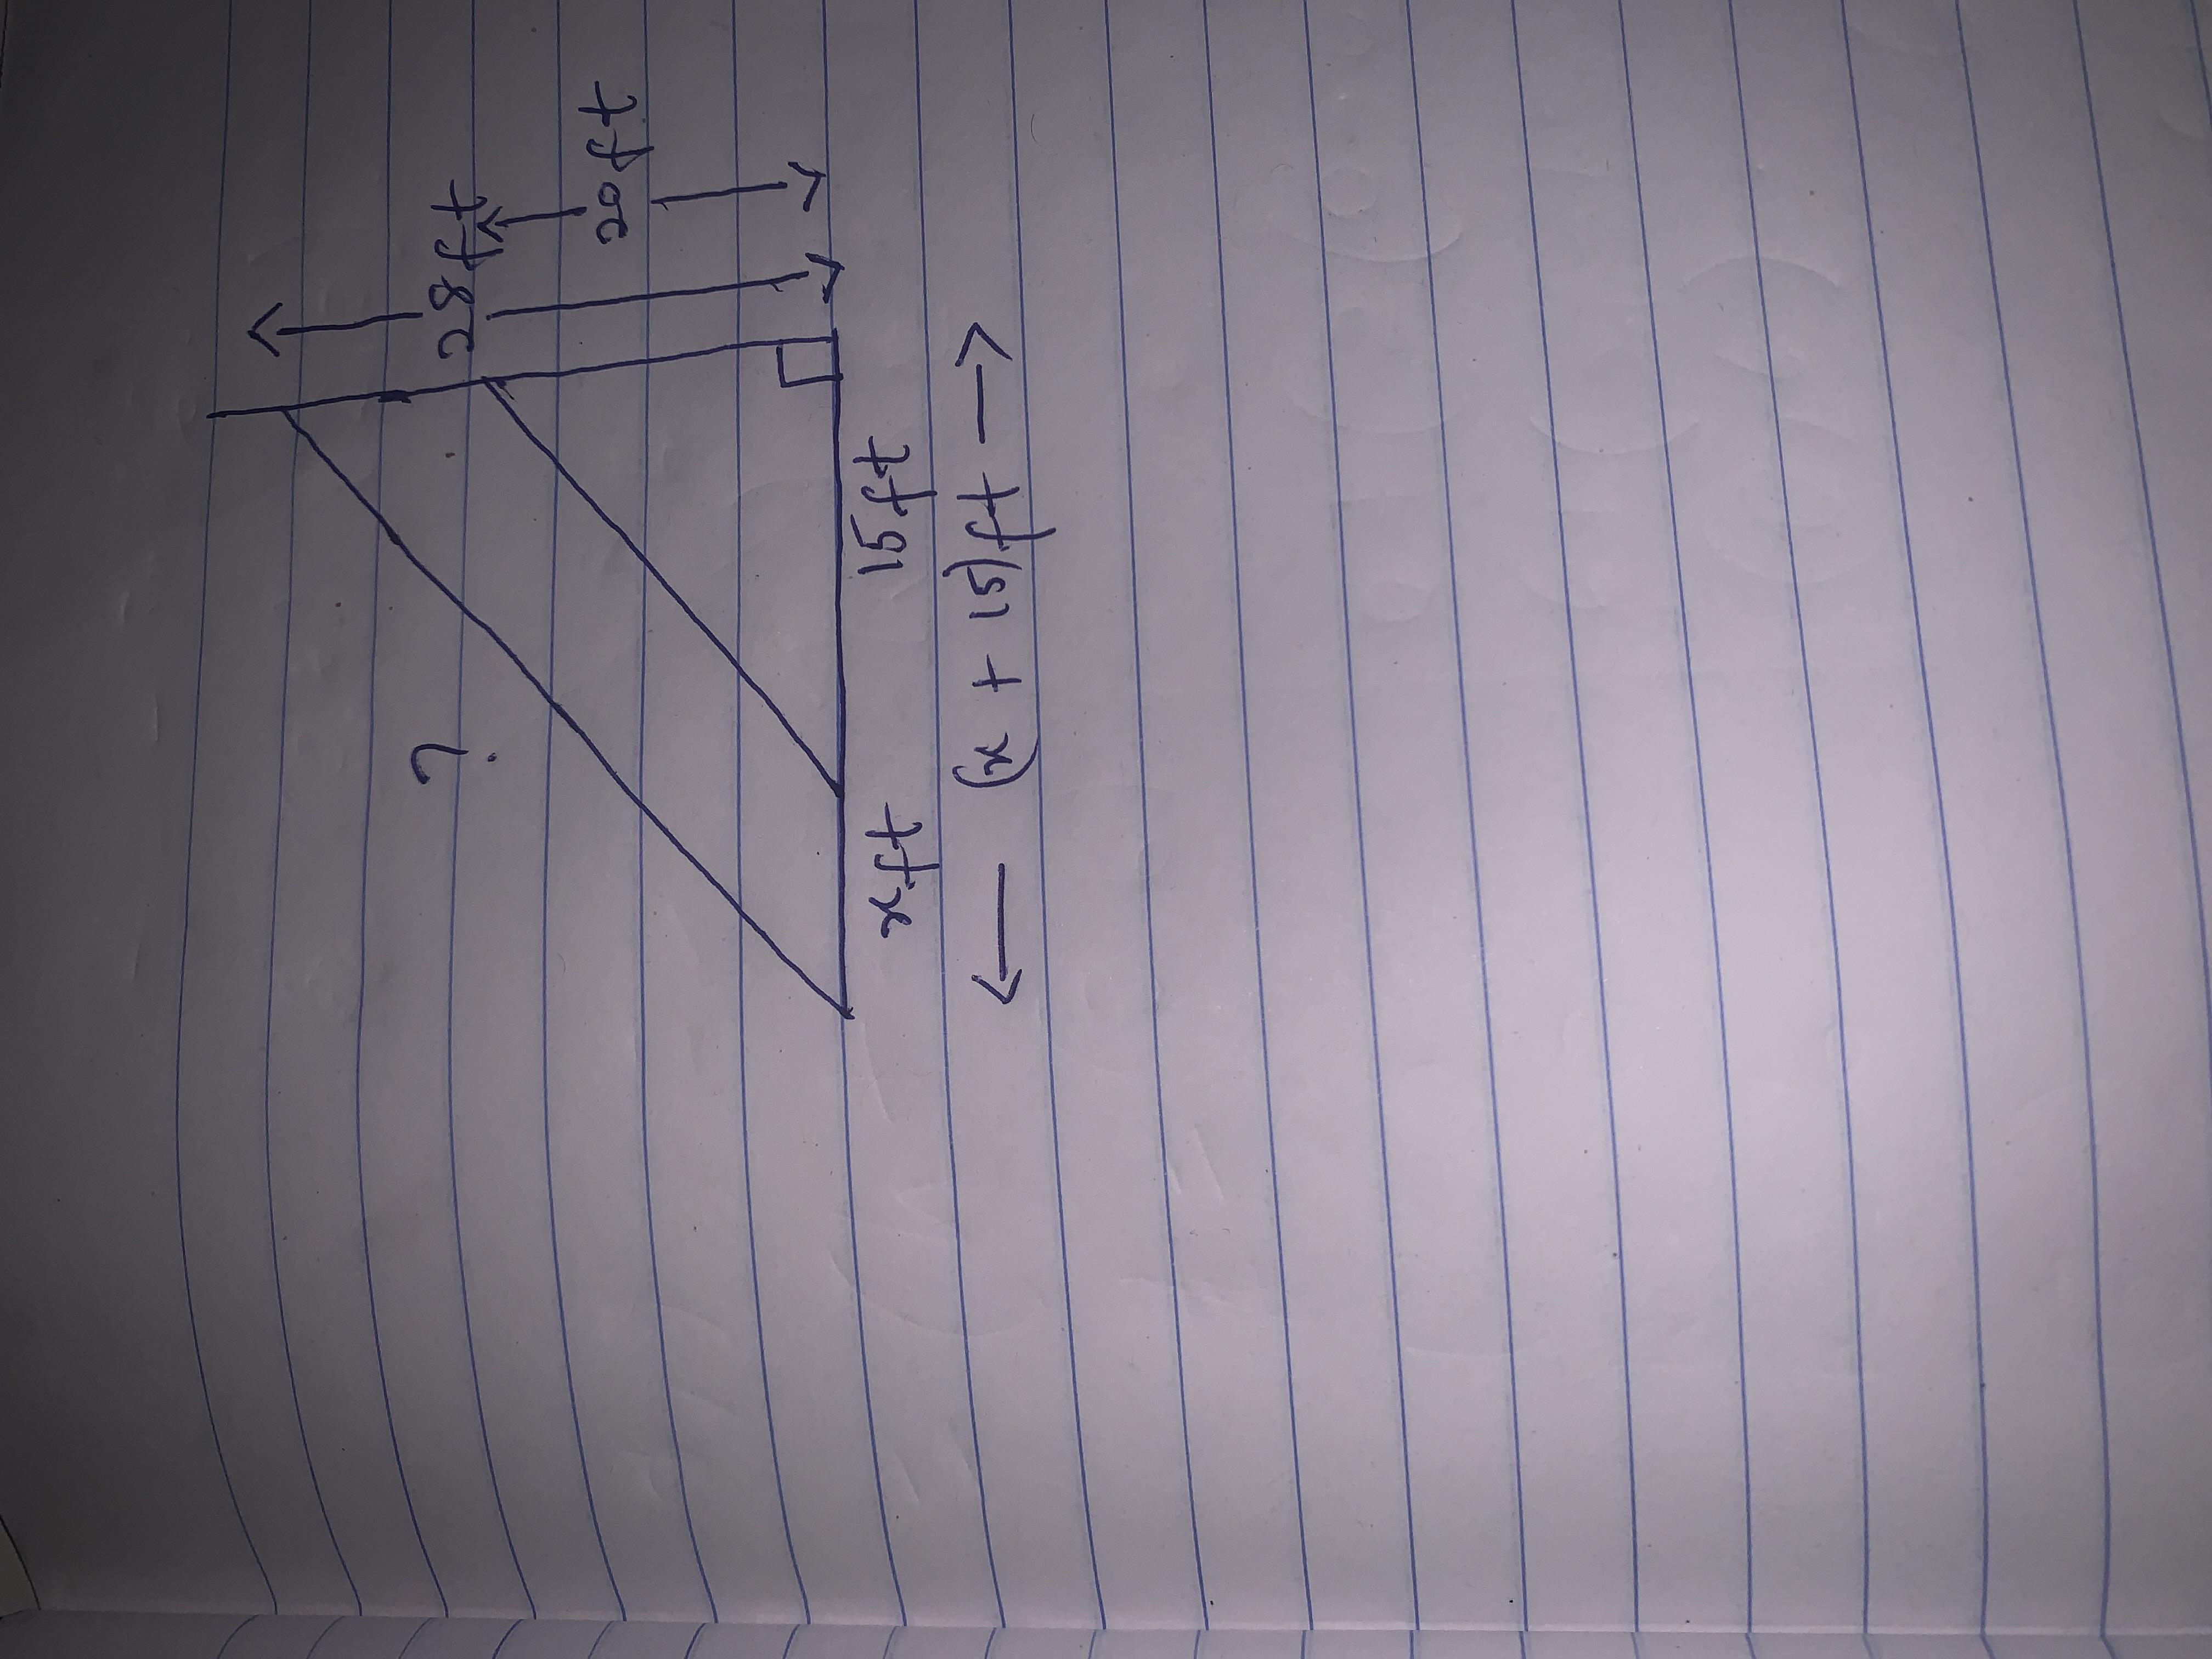 ?
28ft
20ft
xft 15ft
(x + 15)ft